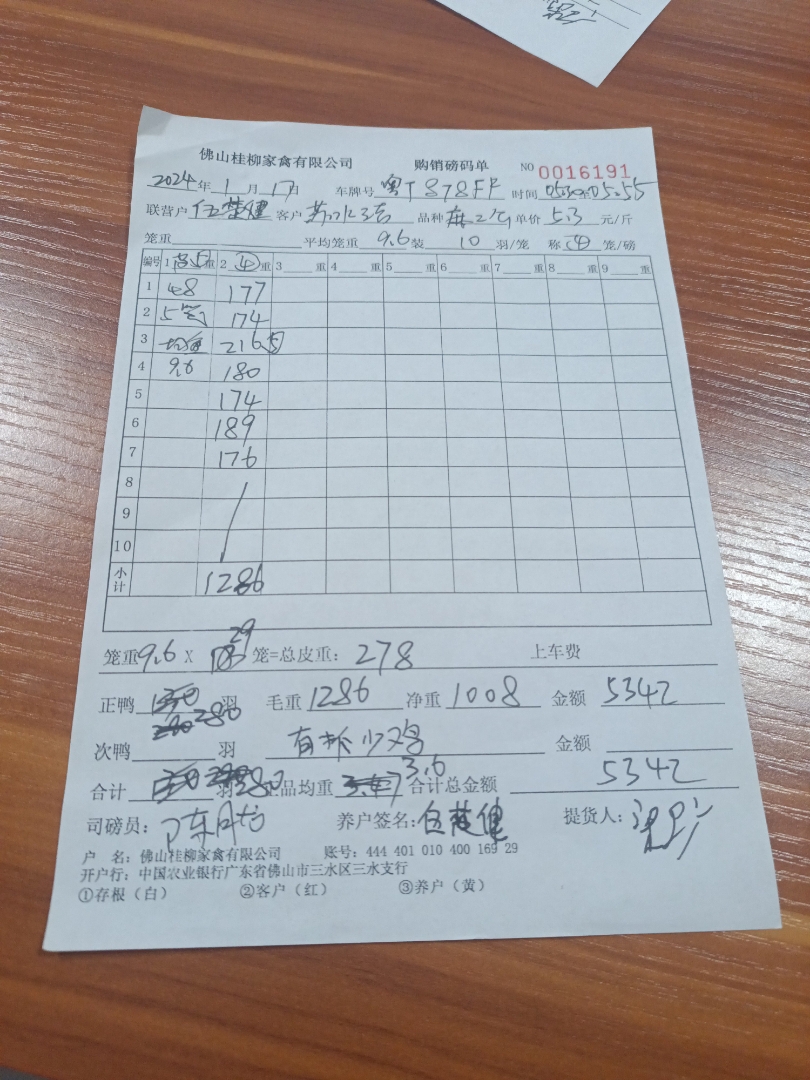 佛山桂柳家禽有限公司 购销磅码单 NO 0016191
2024年 1月 17日 车牌号 粤T878FF 时间 0530至05.55
联营户 伍荣健 客户 品种 单价 5.3 元/斤
笼重 平均笼重 9.6 装 10 羽/笼 称 ④ 笼/磅
编号 1 重 2 ④ 重 3 重 4 重 5 重 6 重 7 重 8 重 9 重
1 48 177
2 5笼 174
3 216
4 9.6 180
5 174
6 189
7 176
8
9
10
小计 1286
笼重 9.6 X 29 笼=总皮重: 278 上车费
正鸭 280 羽 毛重 1286 净重 1008 金额 5342
次鸭 羽 有拆少鸡 金额
合计 280 羽 正品均重 3.6 合计总金额 5342
司磅员: 养户签名: 伍荣健 提货人:
户 名: 佛山桂柳家禽有限公司 账号: 444 401 010 400 169 29
开户行: 中国农业银行广东省佛山市三水区三水支行
①存根（白） ②客户（红） ③养户（黄）